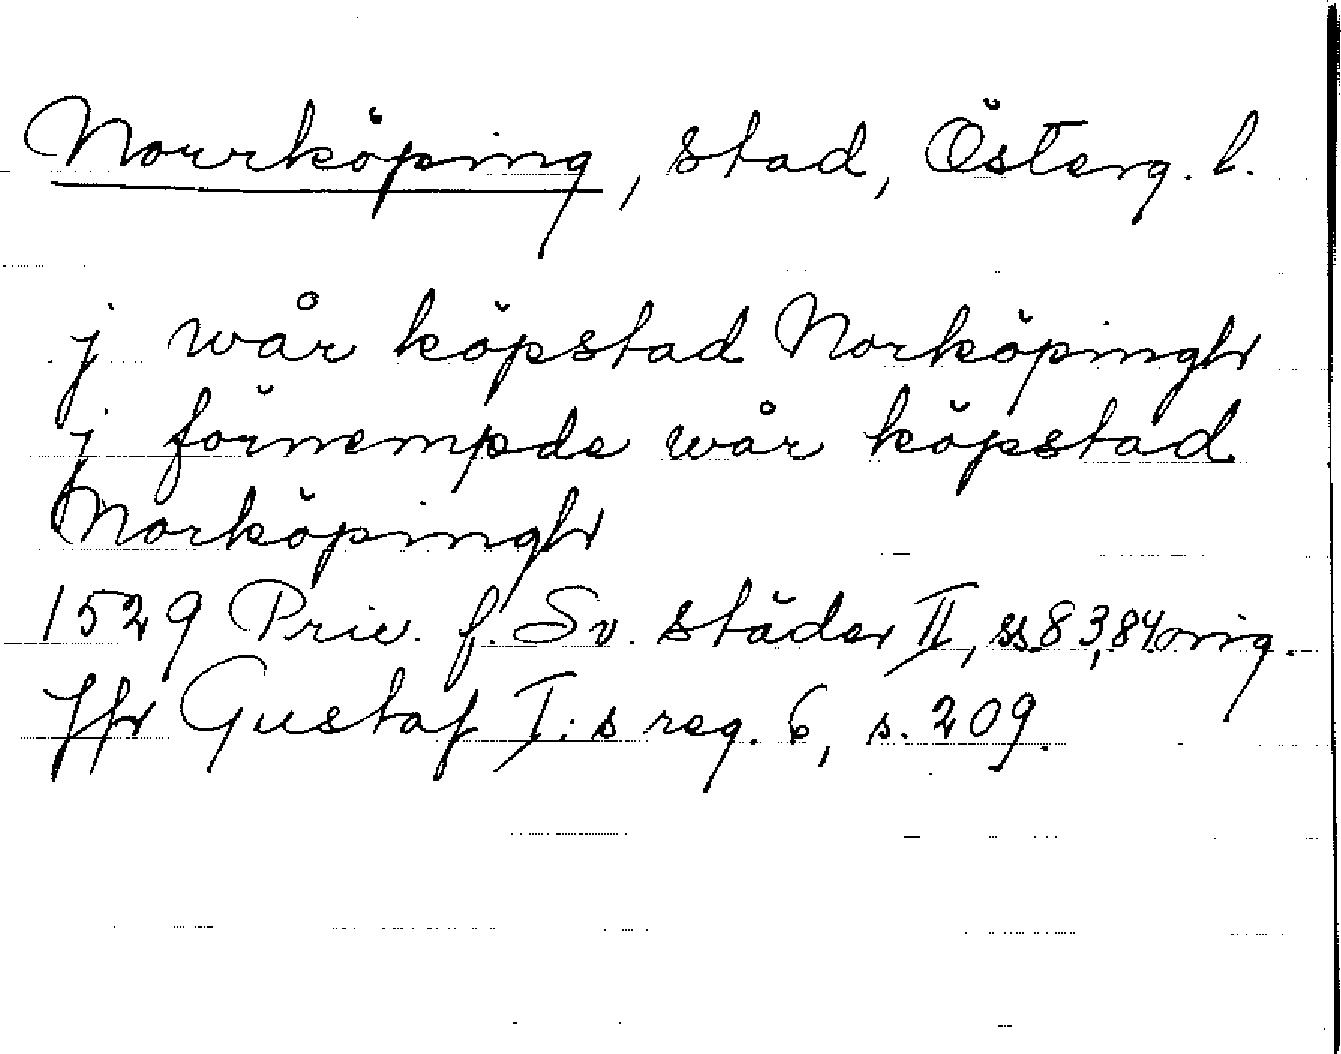 Norrköping, stad, Österg. l.
j wår köpstad Norköpingh
j förnempde wår köpstad
Norköpingh
1529 Priv. f. Sv. städer II, ss 83,84 orig.
Jfr Gustaf I:s reg. 6, s. 209.